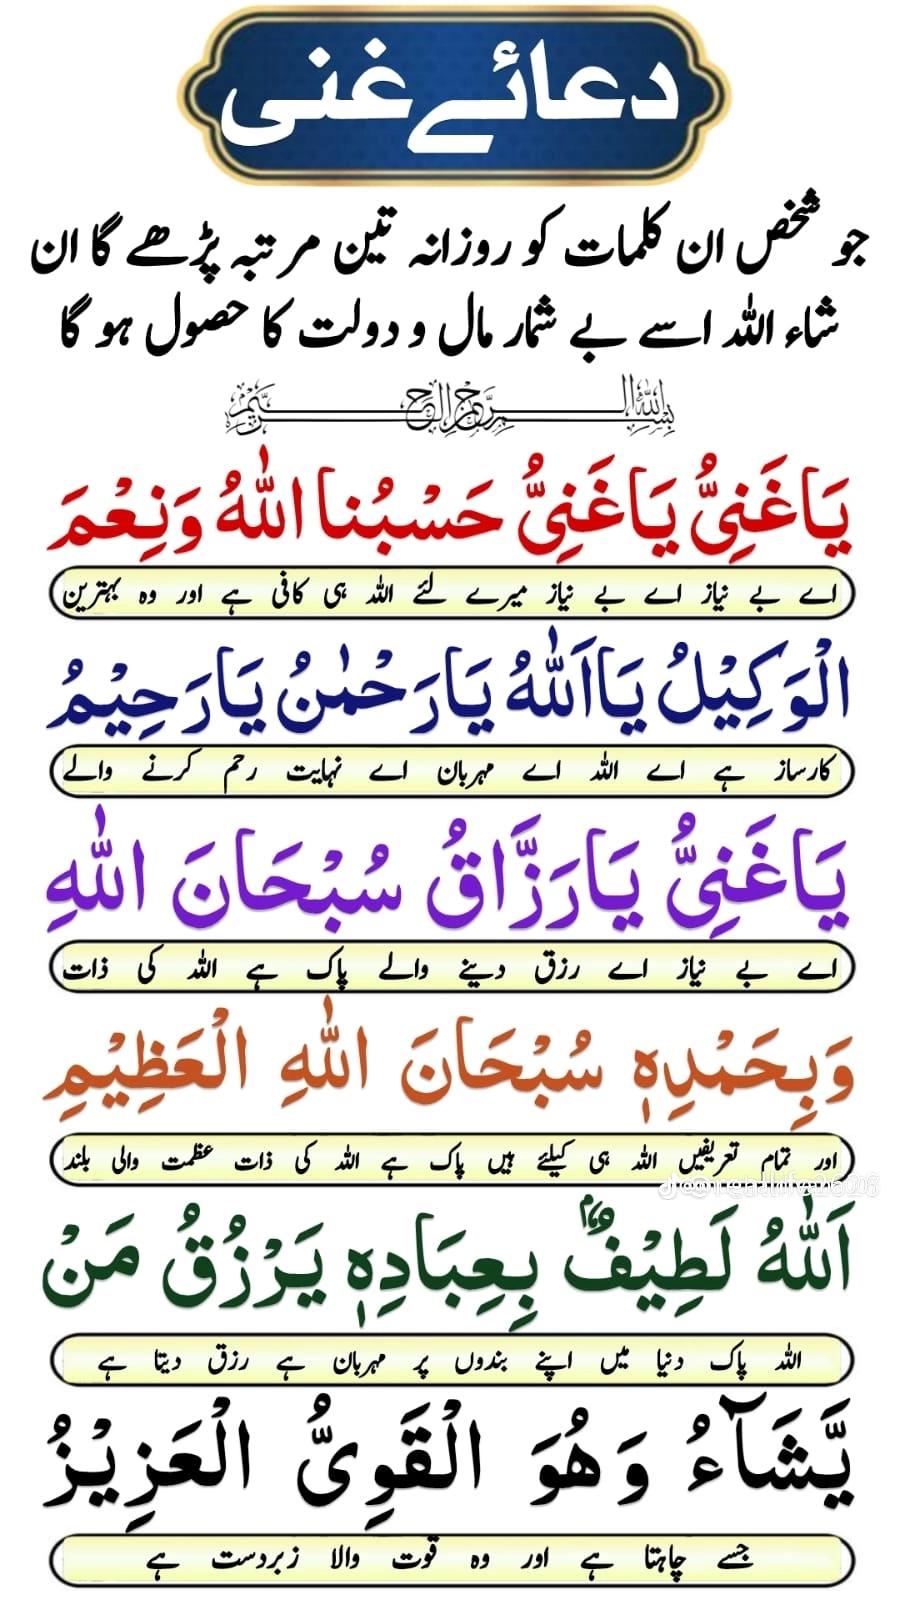 دعائے غنی
جو شخص ان کلمات کو روزانہ تین مرتبہ پڑھے گا ان
شاء اللہ اسے بے شمار مال و دولت کا حصول ہو گا
بِسْمِ اللهِ الرَّحْمٰنِ الرَّحِيْمِ
يَاغَنِىُّ يَاغَنِىُّ حَسْبُنا اللّٰهُ وَنِعْمَ
اے بے نیاز اے بے نیاز میرے لئے اللہ ہی کافی ہے اور وہ بہترین
الْوَكِيْلُ يَااَللّٰهُ يَارَحْمٰنُ يَارَحِيْمُ
کارساز ہے اے اللہ اے مہربان اے نہایت رحم کرنے والے
يَاغَنِىُّ يَارَزَّاقُ سُبْحَانَ اللّٰهِ
اے بے نیاز اے رزق دینے والے پاک ہے اللہ کی ذات
وَبِحَمْدِهٖ سُبْحَانَ اللّٰهِ الْعَظِيْمِ
اور تمام تعریفیں اللہ ہی کیلئے ہیں پاک ہے اللہ کی ذات عظمت والی بلند
اَللّٰهُ لَطِيْفٌۢ بِعِبَادِهٖ يَرْزُقُ مَنْ
اللہ پاک دنیا میں اپنے بندوں پر مہربان ہے رزق دیتا ہے
يَّشَآءُ وَهُوَ الْقَوِىُّ الْعَزِيْزُ
جسے چاہتا ہے اور وہ قوت والا زبردست ہے